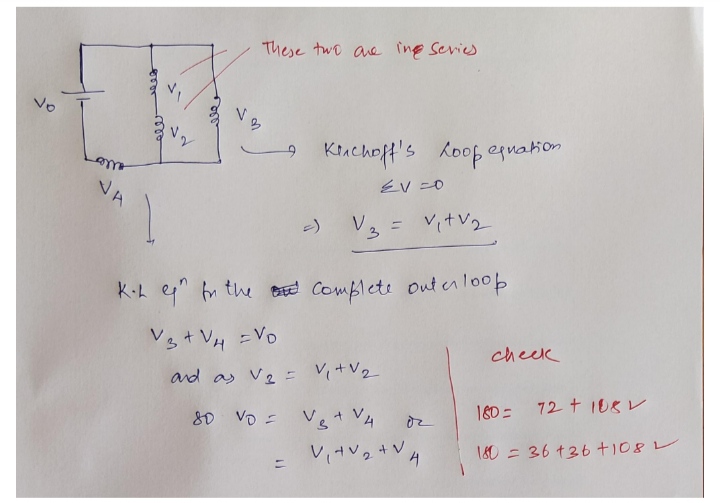 These two are in series
V0
V1
V2
V3
V4
Kirchoff's Loop equation
ΣV = 0
⇒ V3 = V1 + V2
K.L eqn for the complete outer loop
V3 + V4 = V0
and as V3 = V1 + V2
so V0 = V3 + V4 or
= V1 + V2 + V4
check
180 = 72 + 108 ✓
180 = 36 + 36 + 108 ✓